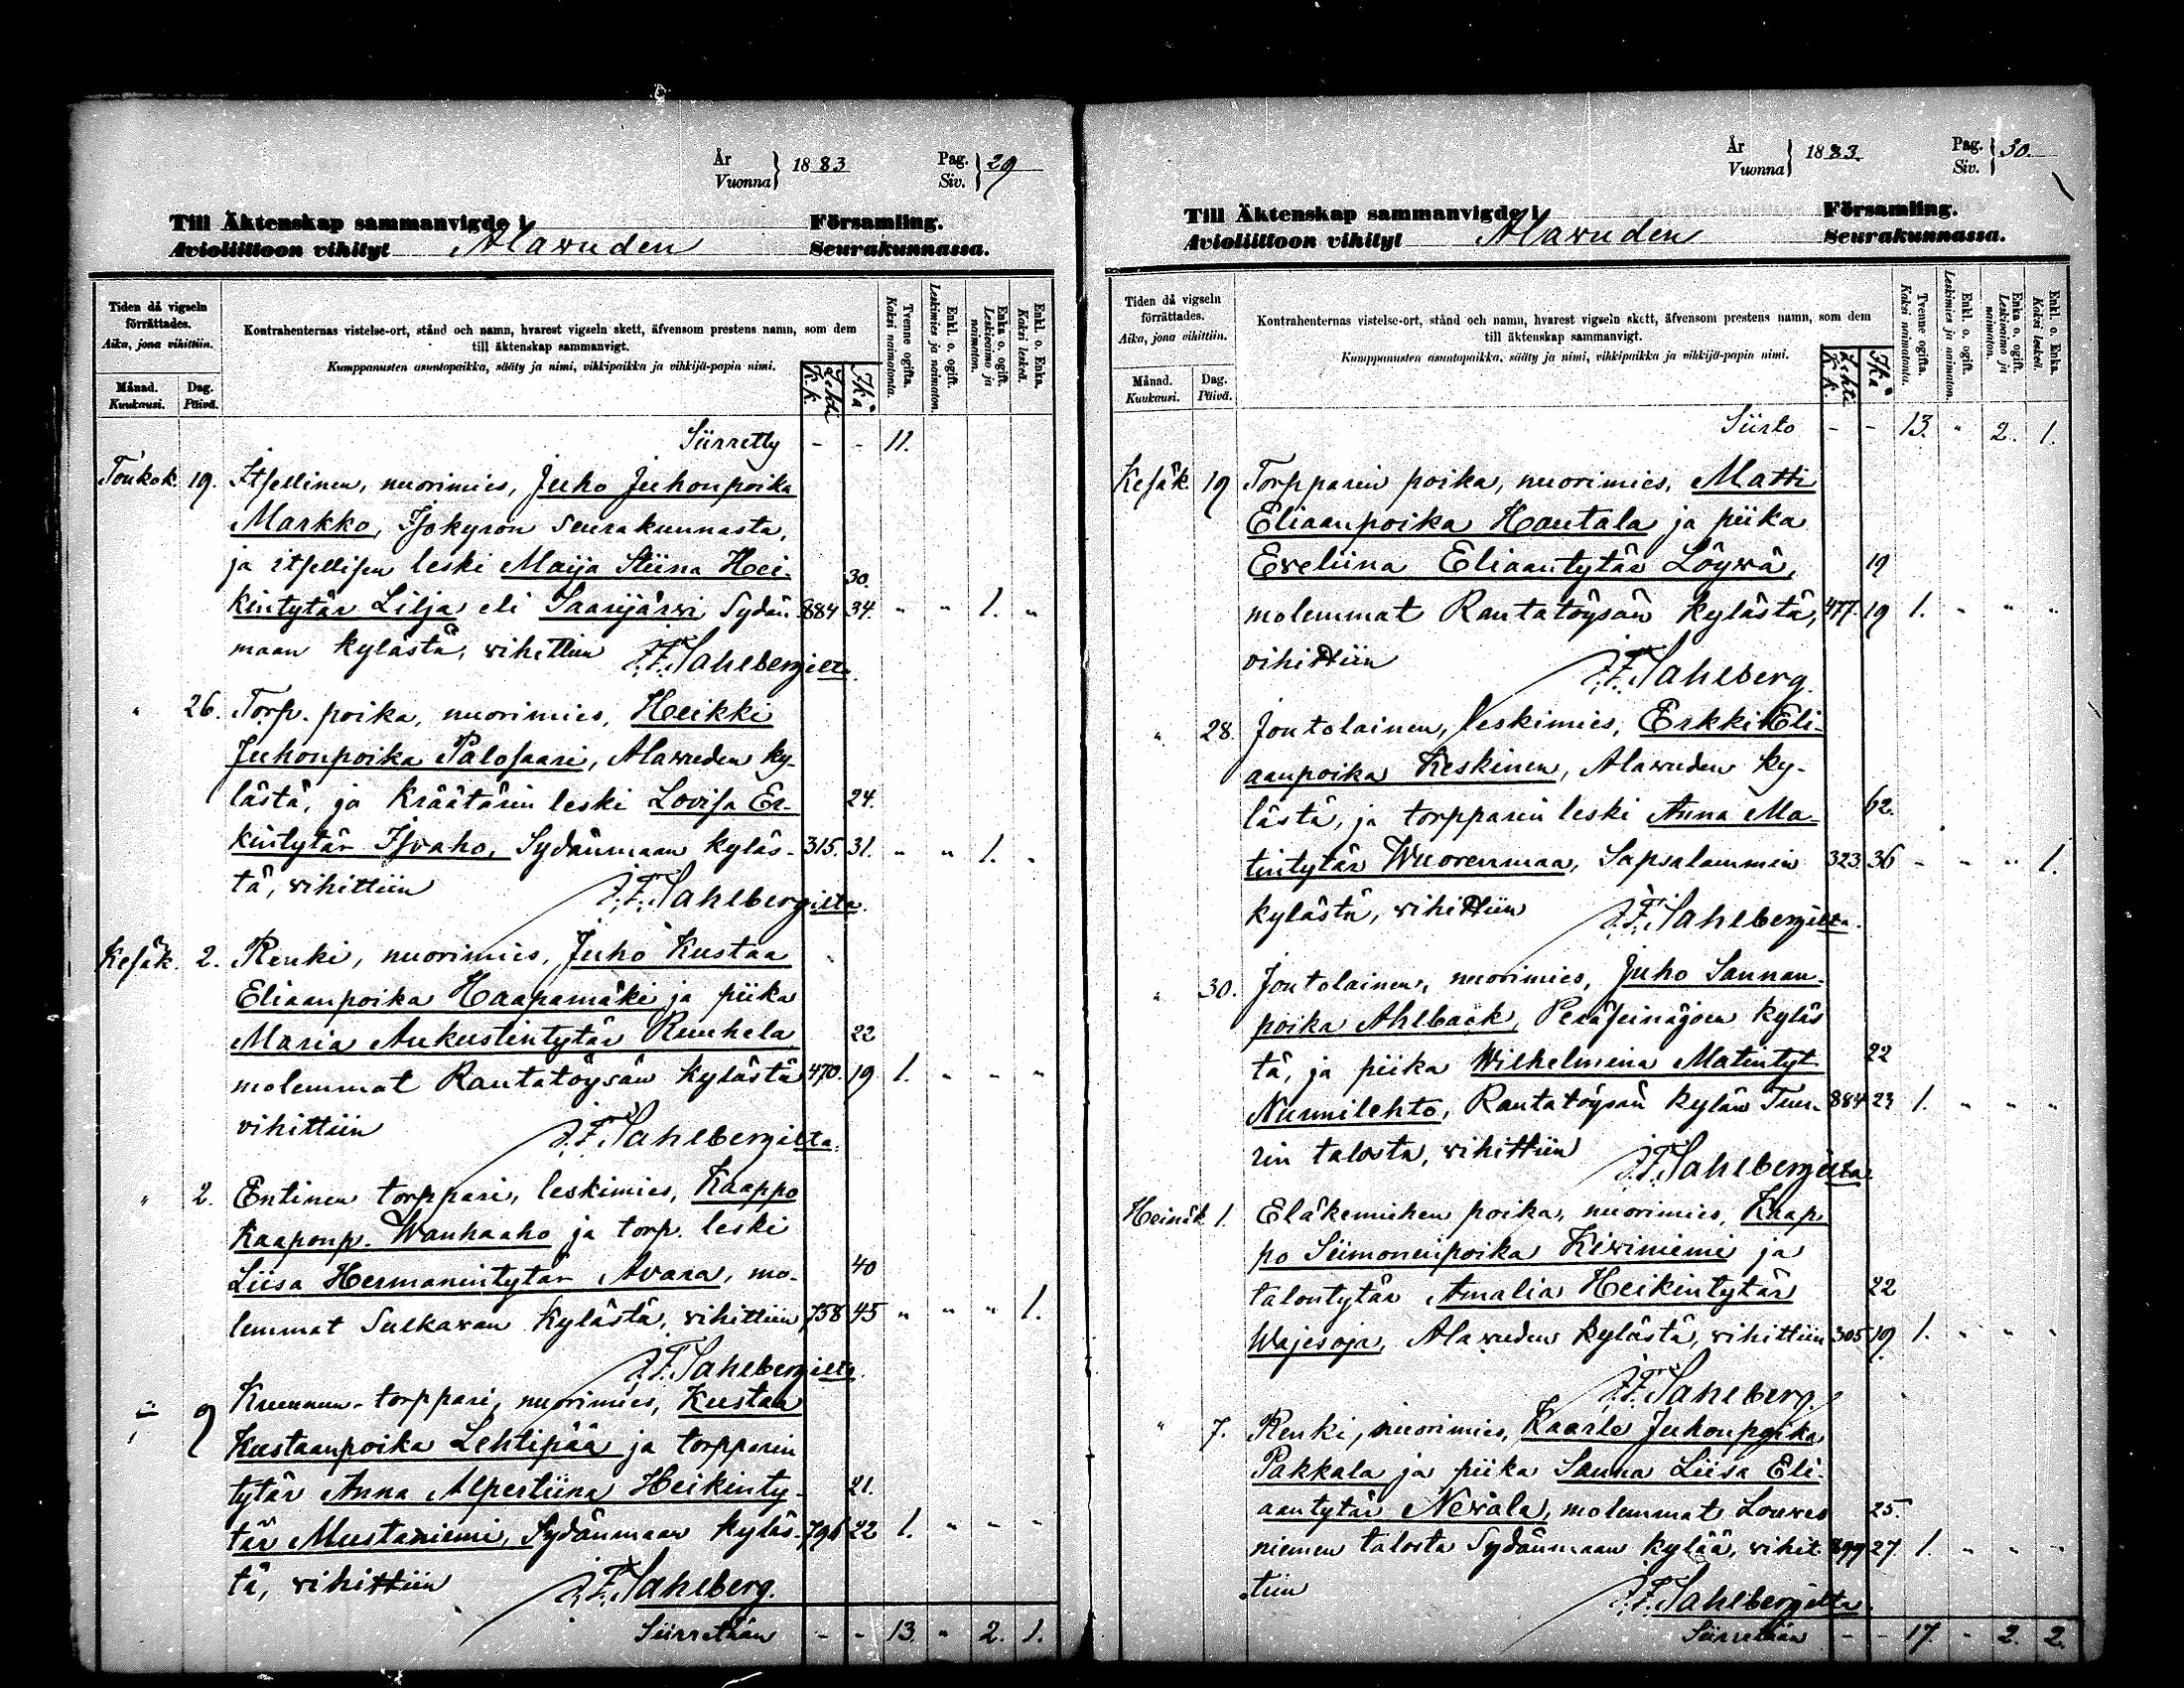 År
Vuonna } 1883
Pag.
Siv. } 29
Till Äktenskap sammanvigde i Församling.
Avioliittoon vihityt Alawuden Seurakunnassa.
Tiden då vigseln förrättades.
Aika, jona vihittiin.
Månad.
Kuukausi.
Dag.
Päivä.
Kontrahenternas vistelse-ort, stånd och namn, hvarest vigseln skett, äfvensom prestens namn, som dem
till äktenskap sammanvigt.
Kumppanusten asuntopaikka, sääty ja nimi, vihkipaikka ja vihkijä-papin nimi.
K.k. Lehti
Ikä
Tvenne ogifta.
Kaksi naimatonta.
Enkl. o. ogift.
Leskimies ja naimaton.
Enka o. ogift.
Leskivaimo ja naimaton.
Enkl. o. Enka.
Kaksi leskeä.
Siirretty - - 11.
Toukok. 19. Itsellinen, nuorimies, Juho Juhonpoika
Markko, Isokyrön seurakunnasta,
ja itsellisen leski Maija Stiina Hei- 30
kintytär Lilja eli Saarijärwi Sydän- 884 34. " " 1. "
maan kylästä, wihittiin J.F. Sahlbergilta.
" 26. Torp. poika, nuorimies, Heikki
Juhonpoika Palosaari, Alawuden ky-
lästä, ja kräätärin leski Lovisa Er- 24.
kintytär Isoaho, Sydänmaan kyläs- 315. 31. " " 1. "
tä, vihittiin J.F. Sahlbergilta.
Kesäk. 2. Renki, nuorimies, Juho Kustaa
Eliaanpoika Haapamäki ja piika
Maria Aukustintytär Ruuhela 22
molemmat Rantatöysän kylästä 470. 19 1. " " "
vihittiin J.F. Sahlbergilta.
" 2. Entinen torppari, leskimies, Kaappo
Kaaponp. Wanhaaho ja torp. leski
Liisa Hermanintytär Avara, mo- 40
lemmat Sulkavan kylästä, vihittiin 758 45 " " " 1.
J.F. Sahlbergilta.
" 9 Kruunun-torppari, nuorimies, Kustaa
Kustaanpoika Lehtipää ja torpparin
tytär Anna Alpertiina Heikinty- 21.
tär Mustaniemi, Sydänmaan kyläs- 796 22 1. " " "
tä, vihittiin J.F. Sahlberg.
Siirretään - - 13. " 2. 1.
År
Vuonna } 1883.
Pag.
Siv. } 30.
Till Äktenskap sammanvigde i Församling.
Avioliittoon vihityt Alawuden Seurakunnassa.
Tiden då vigseln förrättades.
Aika, jona vihittiin.
Månad.
Kuukausi.
Dag.
Päivä.
Kontrahenternas vistelse-ort, stånd och namn, hvarest vigseln skett, äfvensom prestens namn, som dem
till äktenskap sammanvigt.
Kumppanusten asuntopaikka, sääty ja nimi, vihkipaikka ja vihkijä-papin nimi.
K.k. Lehti
Ikä
Tvenne ogifta.
Kaksi naimatonta.
Enkl. o. ogift.
Leskimies ja naimaton.
Enka o. ogift.
Leskivaimo ja naimaton.
Enkl. o. Enka.
Kaksi leskeä.
Siirto - - 13. " 2. 1.
Kesäk. 19 Torpparin poika, nuorimies, Matti
Eliaanpoika Hautala ja piika
Eveliina Eliaantytär Löywä, 19
molemmat Rantatöysän kylästä, 477. 19 1. " " "
vihittiin J.F. Sahlberg.
" 28. Joutolainen, leskimies, Erkki Eli-
aanpoika Keskinen, Alawuden ky-
lästä, ja torpparin leski Anna Ma- 62.
tintytär Wuorenmaa, Sapsalammin 323 36 - " " 1.
kylästä, vihittiin J.F. Sahlbergilta.
" 30. Joutolainen, nuorimies, Juho Sannan-
poika Ahlbäck, Peräseinäjoen kyläs
tä, ja piika Wilhelmiina Matintyt 22
Nurmilehto, Rantatöysän kylän Tuu- 884 23 1. " " "
rin talosta, vihittiin J.F. Sahlbergilta.
Heinäk. 1. Eläkemiehen poika, nuorimies, Kaap-
po Siimoninpoika Kiviniemi ja
talontytär Amalia Heikintytär 22
Wajesoja, Alawuden kylästä, vihittiin 305 19 1. " " "
J.F. Sahlberg.
" 7. Renki, nuorimies, Kaarle Juhonpoika
Pakkala ja piika Sanna Liisa Eli-
aantytär Newala, molemmat Louwes 25.
niemen talosta Sydänmaan kylää, vihit- 899 27. 1. " " "
tiin J.F. Sahlbergilta.
Siirretään - - 17. " 2. 2.